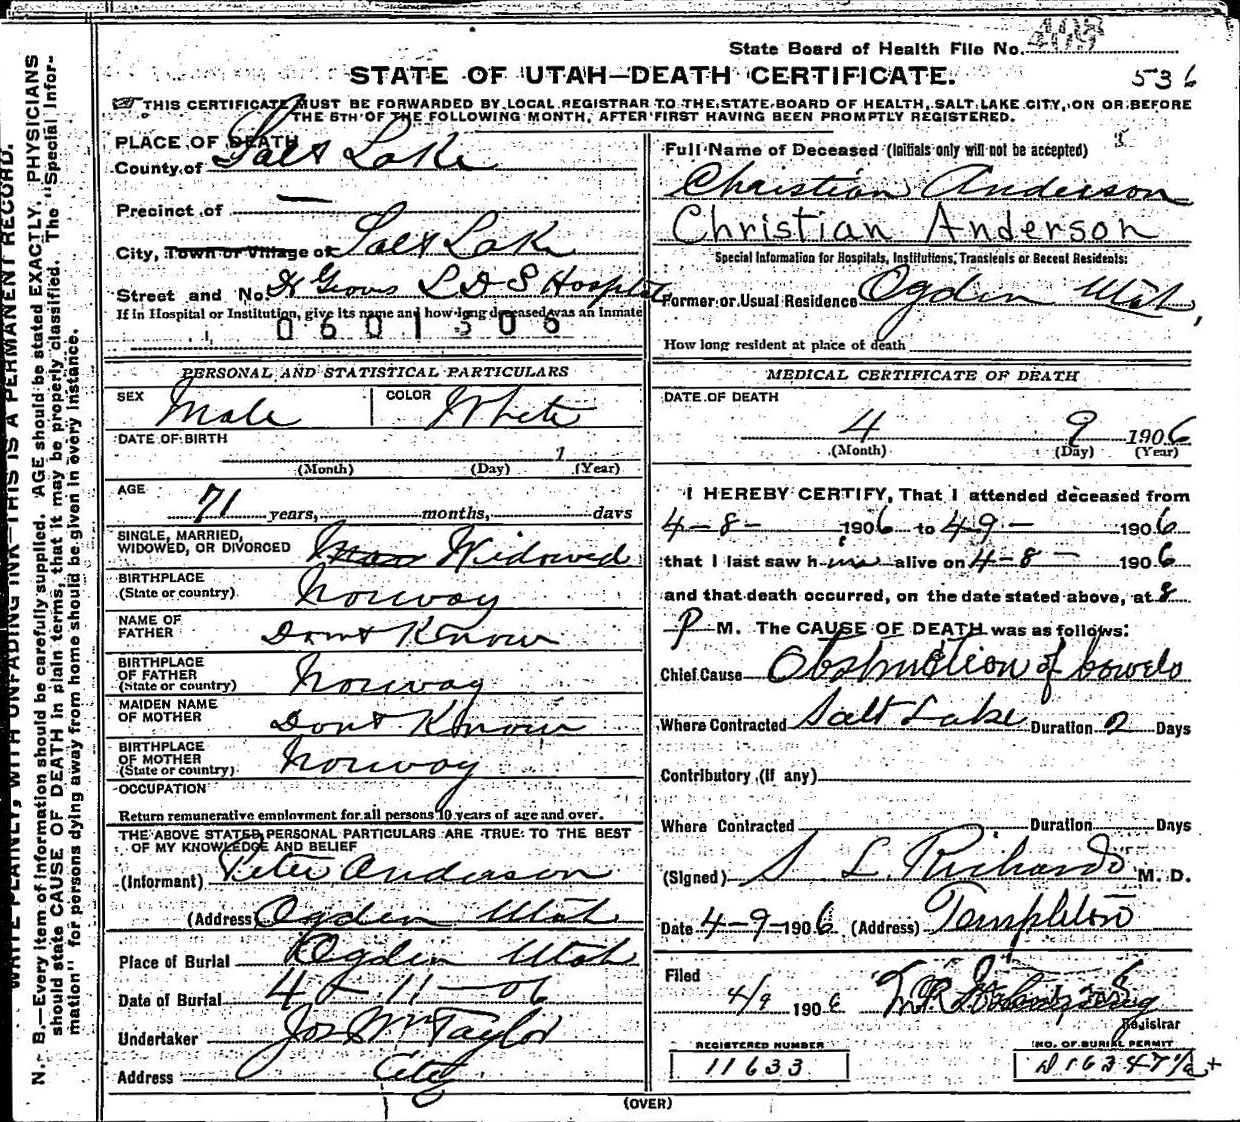 State Board of Health File No. 409
STATE OF UTAH—DEATH CERTIFICATE.
536
THIS CERTIFICATE MUST BE FORWARDED BY LOCAL REGISTRAR TO THE STATE BOARD OF HEALTH, SALT LAKE CITY, ON OR BEFORE
THE 5TH OF THE FOLLOWING MONTH, AFTER FIRST HAVING BEEN PROMPTLY REGISTERED.
PLACE OF DEATH
County of Salt Lake
Precinct of —
City, Town or Village of Salt Lake
Street and No. Dr Groves L D S Hospital
If in Hospital or Institution, give its name and how long deceased was an Inmate
0601306
PERSONAL AND STATISTICAL PARTICULARS
SEX Male COLOR White
DATE OF BIRTH
1
(Month) (Day) (Year)
AGE
71 years, months, days
SINGLE, MARRIED,
WIDOWED, OR DIVORCED Widowed
BIRTHPLACE
(State or country) Norway
NAME OF
FATHER Dont Know
BIRTHPLACE
OF FATHER
(State or country) Norway
MAIDEN NAME
OF MOTHER Dont Know
BIRTHPLACE
OF MOTHER
(State or country) Norway
OCCUPATION
Return remunerative employment for all persons 10 years of age and over.
THE ABOVE STATED PERSONAL PARTICULARS ARE TRUE TO THE BEST
OF MY KNOWLEDGE AND BELIEF
(Informant) Peter Anderson
(Address) Ogden Utah
Place of Burial Ogden Utah
Date of Burial 4 - 11 - 06
Undertaker Jos Wm Taylor
Address City
Full Name of Deceased (Initials only will not be accepted)
Christian Anderson
Christian Anderson
Special Information for Hospitals, Institutions, Transients or Recent Residents:
Former or Usual Residence Ogden Utah,
How long resident at place of death
MEDICAL CERTIFICATE OF DEATH
DATE OF DEATH
4 9 1906
(Month) (Day) (Year)
I HEREBY CERTIFY, That I attended deceased from
4-8- 1906 to 4-9- 1906
that I last saw him alive on 4-8- 1906
and that death occurred, on the date stated above, at 8
P M. The CAUSE OF DEATH was as follows:
Chief Cause Obstruction of bowels
Where Contracted Salt Lake Duration 2 Days
Contributory (if any)
Where Contracted Duration Days
(Signed) S. L. Richards M. D.
Date 4-9-1906 (Address) Templeton
Filed
4/9 1906
Registrar
REGISTERED NUMBER
11633
NO. OF BURIAL PERMIT
(OVER)
WRITE PLAINLY, WITH UNFADING INK—THIS IS A PERMANENT RECORD.
N. B.—Every item of information should be carefully supplied. AGE should be stated EXACTLY. PHYSICIANS
should state CAUSE OF DEATH in plain terms, that it may be properly classified. The "Special Infor-
mation" for persons dying away from home should be given in every instance.